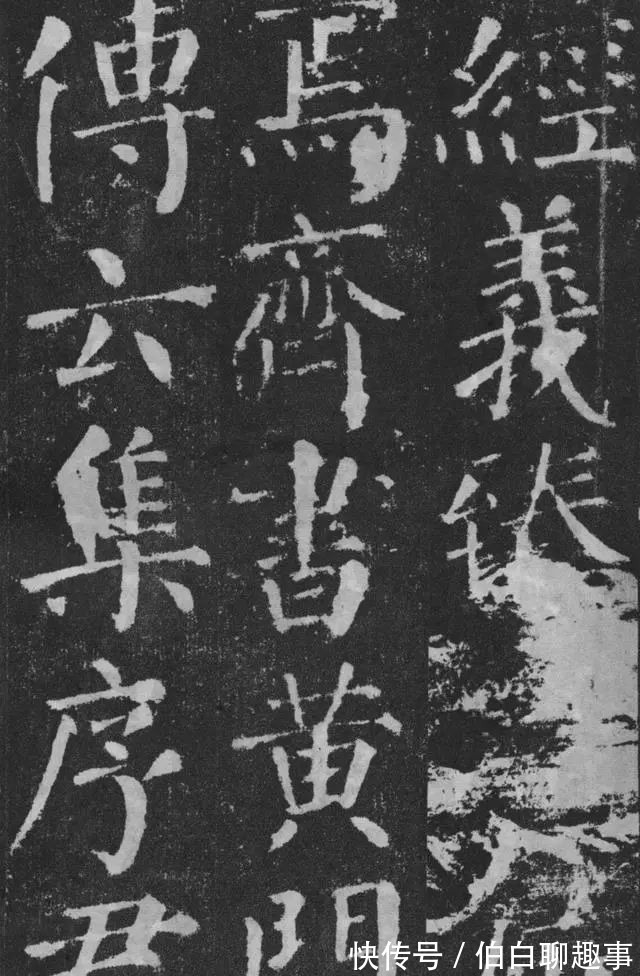 經義臻
焉齊書黃門
傳云集序君
快传号 / 伯白聊趣事